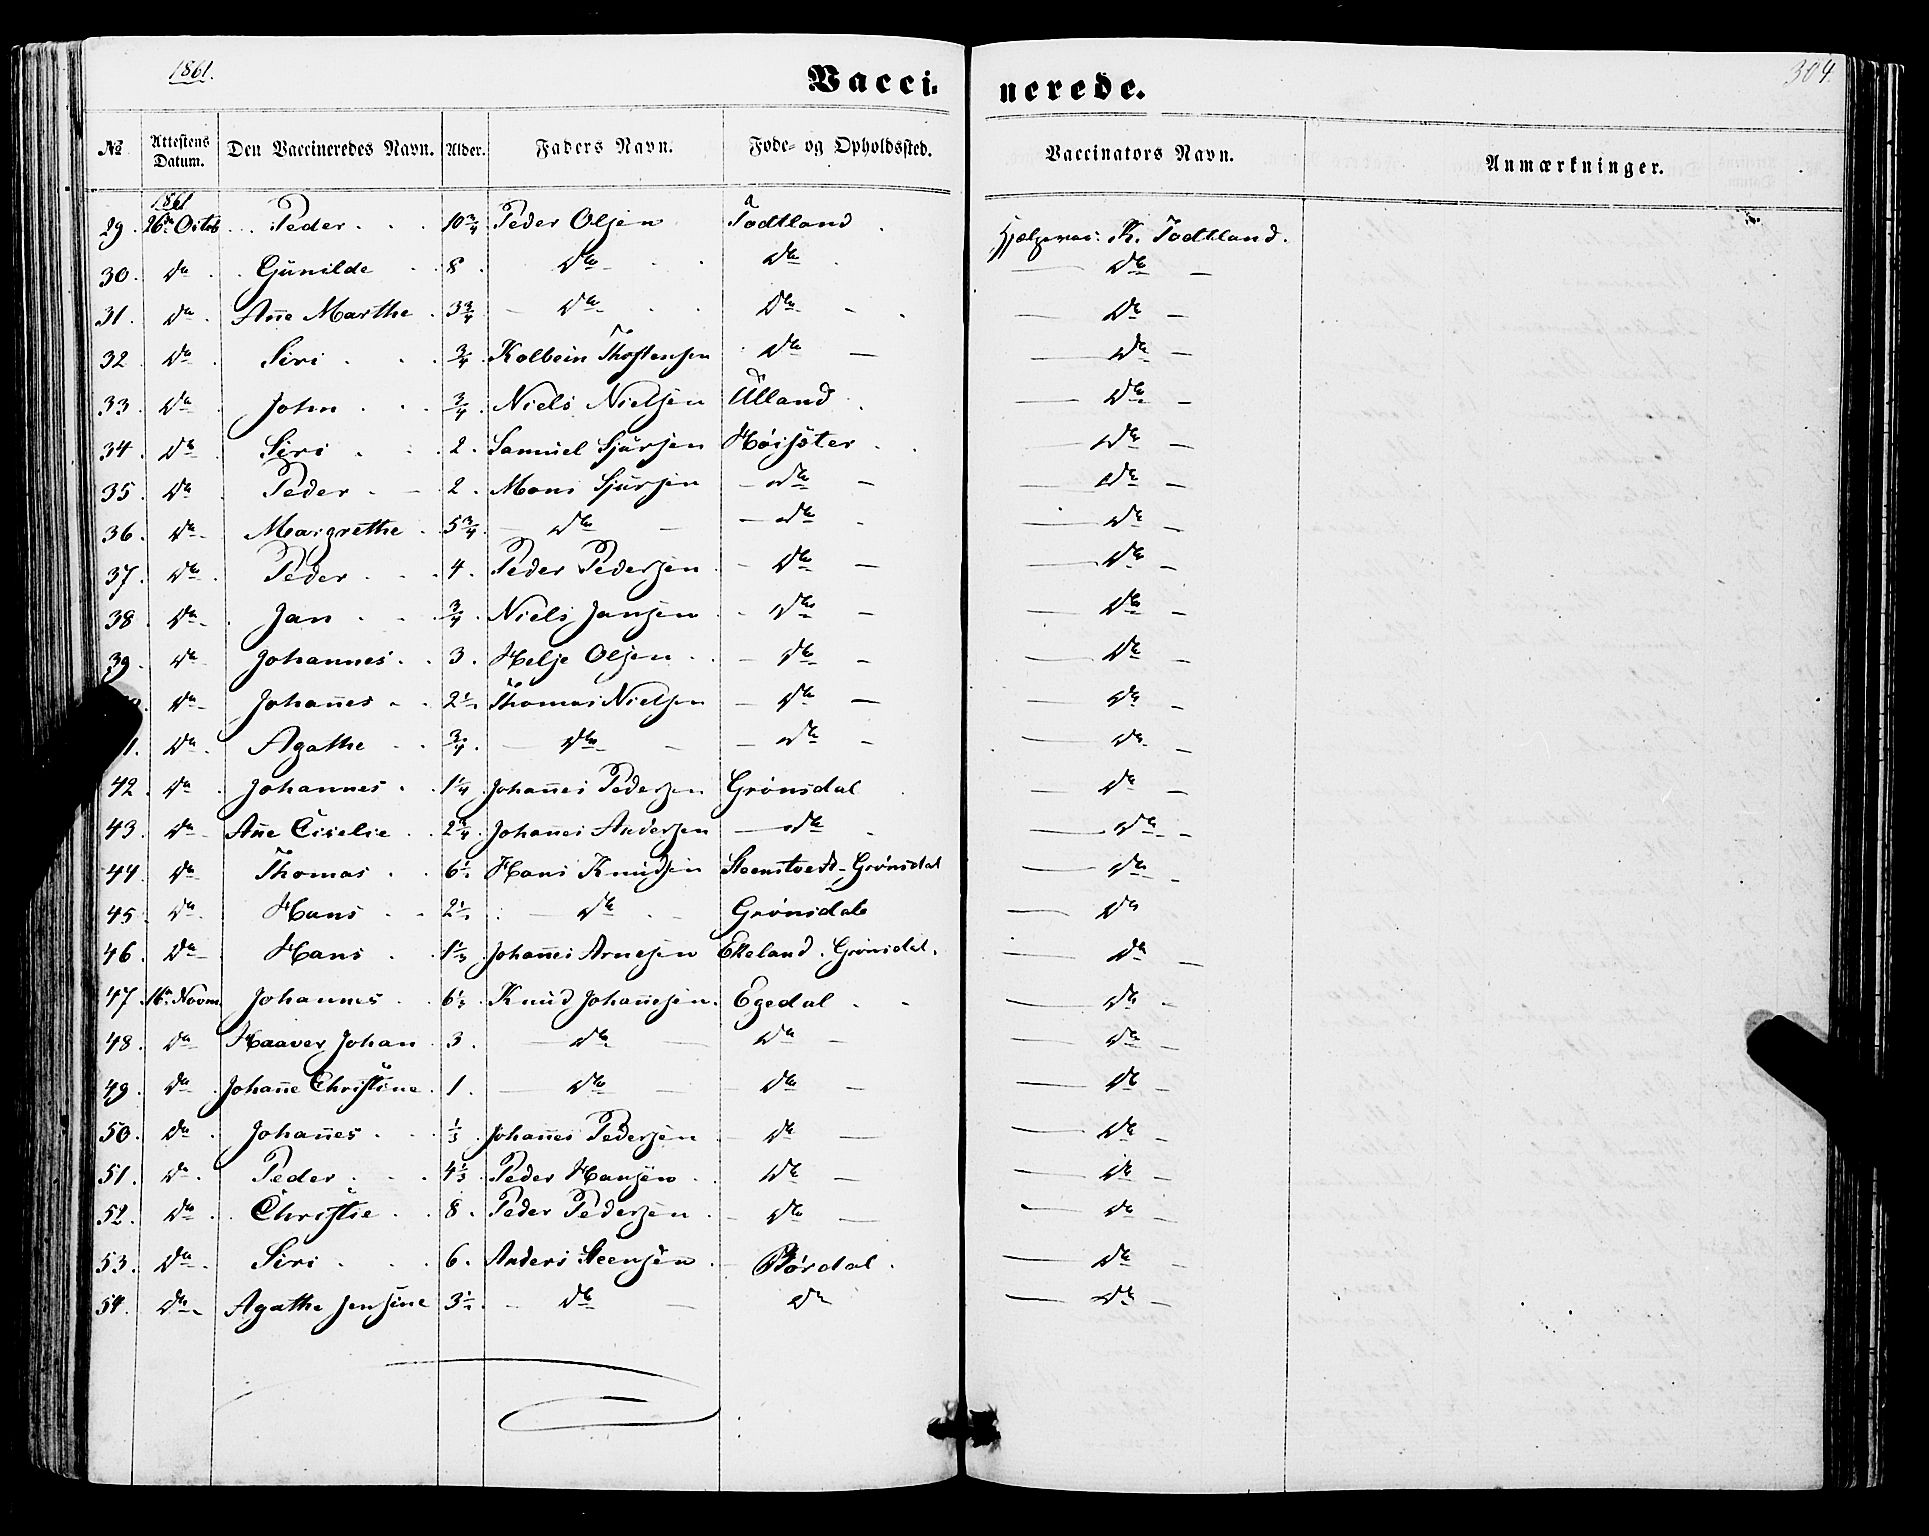 1861.
Vaccinerede.
304.
№ Attestens Datum. Den Vaccineredes Navn. Alder. Faders Navn. Føde- og Opholdssted. Vaccinators Navn. Anmærkninger.
1861
29. 26de Octob. Peder 10 3/4 Peder Olsen Todtland Hjælpevac: K. Todtland.
30. Do Gunilde 8. Do Do Do
31. Do Añe Marthe 3 3/4 Do Do Do
32 Do Siri 3/4 Kolbein Thostensen Do Do
33. Do John 3/4 Niels Nielsen Ulland Do
34. Do Siri 2. Samuel Sjursen Høisæter Do
35. Do Peder 2. Mons Sjursen Do Do
36. Do Margrethe 5 3/4 Do Do Do
37. Do Peder 4. Peder Pedersen Do Do
38. Do Jan 3/4 Niels Jansen Do Do
39. Do Johannes 3. Helje Olsen Do Do
Do Johañes 2 1/2 Thomas Nielsen Do Do
1. Do Agathe 3/4 Do Do Do
42. Do Johannes 1 1/4 Johañes Pedersen Grønsdal Do
43. Do Añe Ciselie 2 3/4 Johañes Andersen Do Do
44. Do Thomas 6 1/2 Hans Knudsen Steenstvedt, Grønsdal Do
45. Do Hans 2 1/2 Do Grønsdal Do
46. Do Hans 1 1/3 Johañes Arnesen Ekeland. Grønsdal. Do
47. 16de Novm. Johannes 6 1/2 Knud Johañesen. Egedal Do
48. Do Haaver Johan 3. Do Do Do
49. Do Johañe Christine 1. Do Do Do
50. Do Johañes 1/3 Johañes Pedersen Do Do
51. Do Peder 4 1/3 Peder Hansen Do Do
52. Do Christie 8. Peder Pedersen Do Do
53. Do Siri 6. Anders Steensen Børdal. Do
54. Do Agathe Jensine 3 1/2 Do Do Do